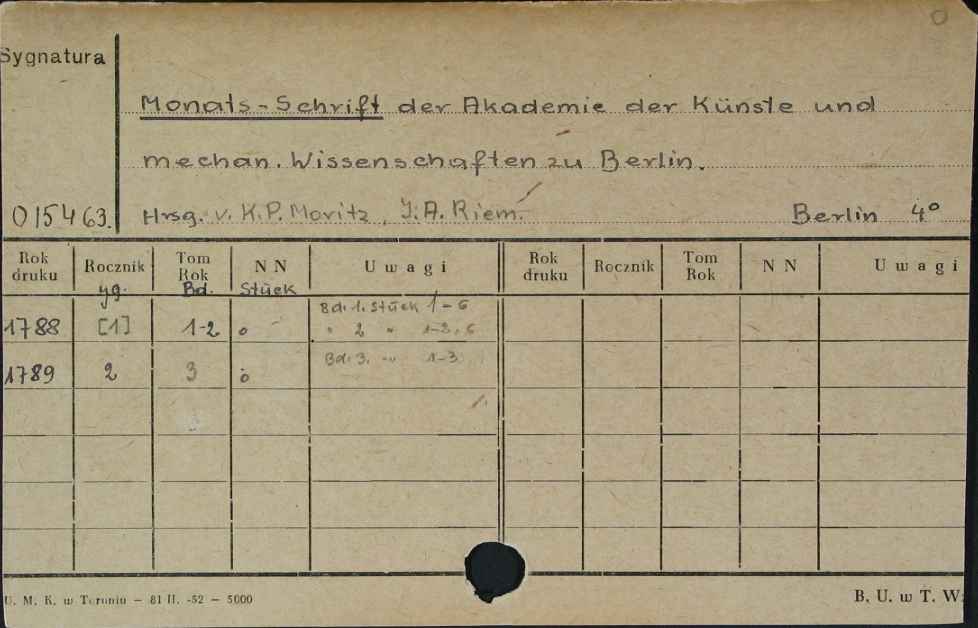 Sygnatura
Monats-Schrift der Akademie der Künste und
mechan. Wissenschaften zu Berlin.
015463. Hrsg. v. K.P. Moritz, J.A. Riem. Berlin 4°
Rok druku Rocznik Tom Rok N N Uwagi Rok druku Rocznik Tom Rok N N Uwagi
yg. Bd. Stück
1788 [1] 1-2 o Bd. 1. Stück 1-6
" 2 " 1-3,6
1789 2 3 o Bd. 3. " 1-3
U. M. K. w Toruniu — 81 II. -52 — 5000 B. U. w T. W: